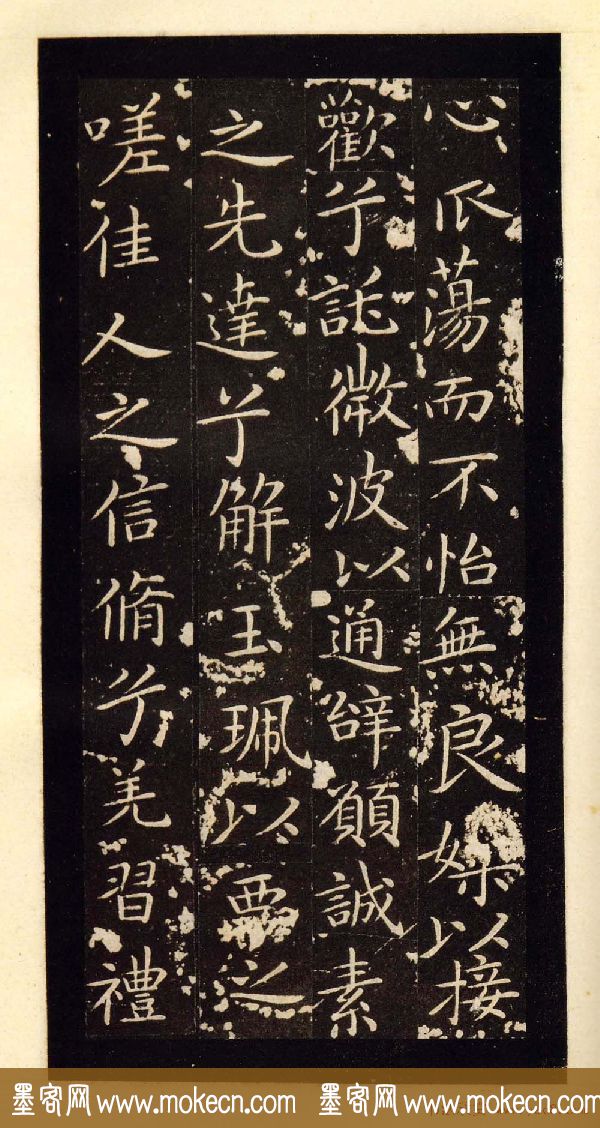 心瓜蕩而不怡無良媒以接
歡兮託微波以通辝願誠素
之先達兮解玉珮以要之
嗟佳人之信脩兮羌習禮
墨客网 www.mokecn.com 墨客网 www.mokecn.com